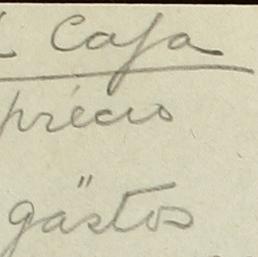 Casa
précio
gästos